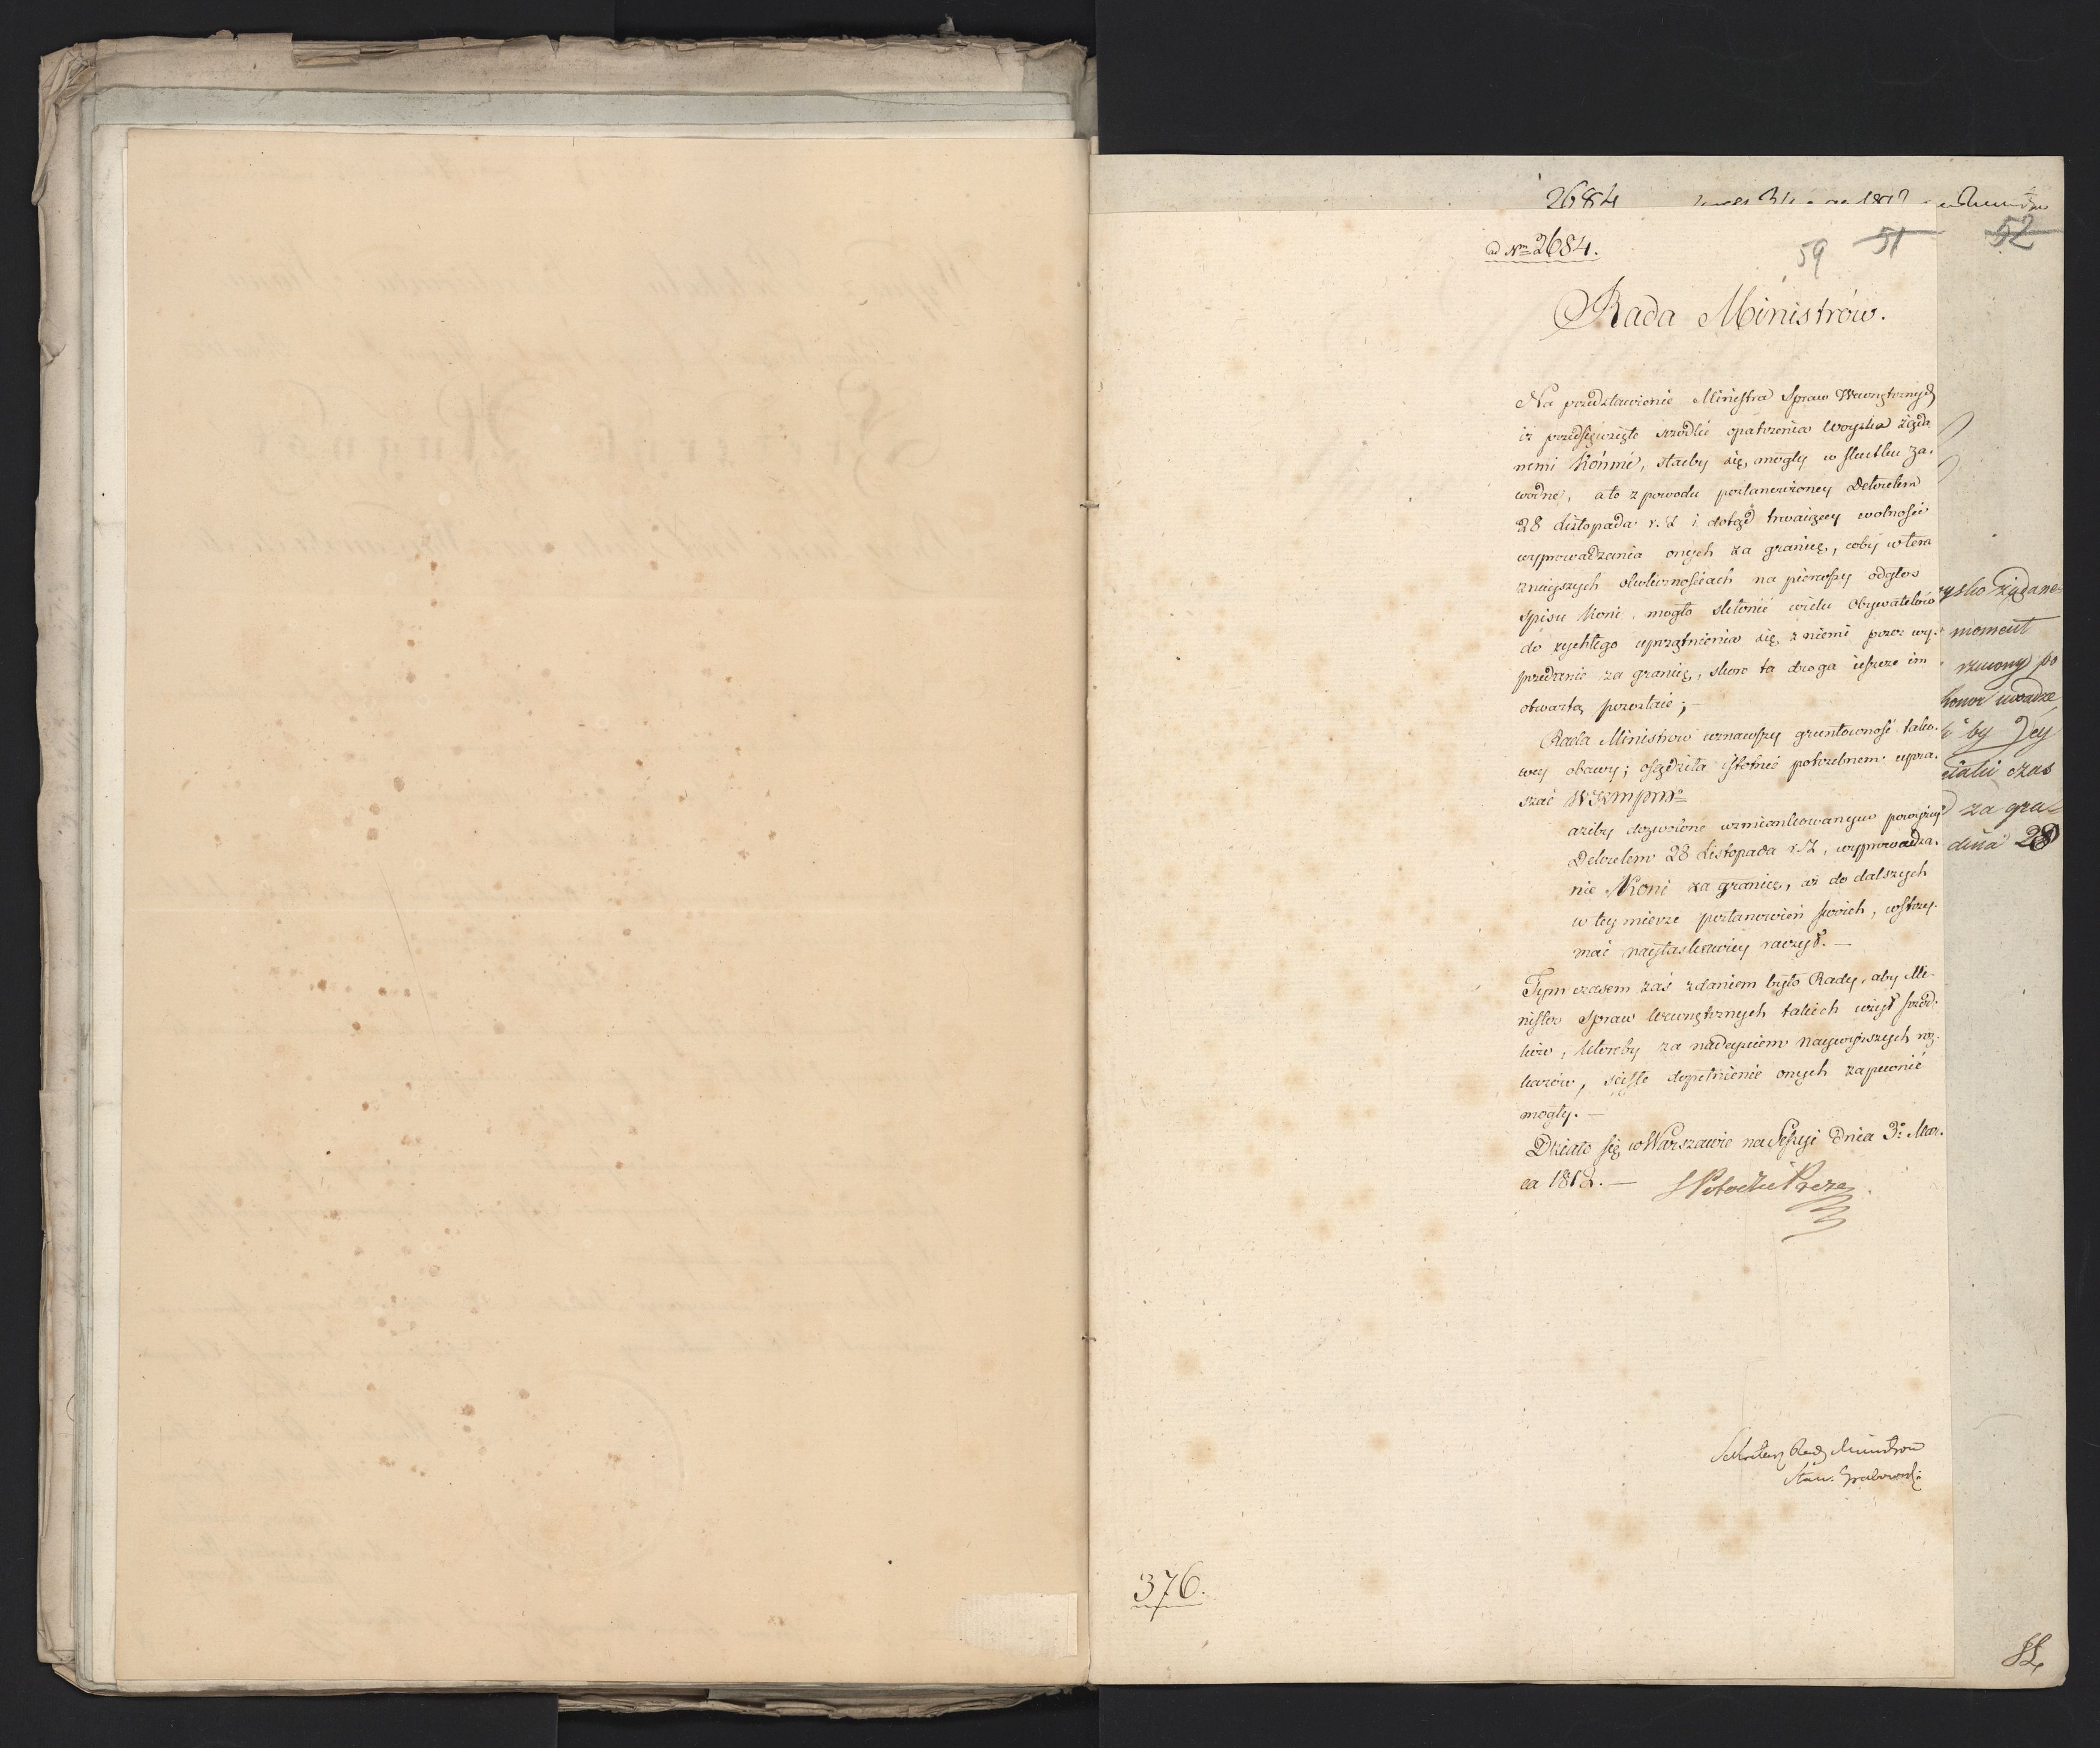 2684
ad Nrm 2684.
59 51 52
Rada Ministrów.
Na przedstawienie Ministra Spraw Wewnętrznych
iż przedsięwzięte srzodki opatrzenia Woyska żąda
nemi Końmi, staćby się mogły w skutku za-
wodne, a to z powodu postanowioney Dekretem
28 Listopada r. z. i dotąd trwaiącey wolności
wyprowadzania onych za granicę, coby w tera
znieyszych okolicznościach na pierwszy odgłos
spisu Koni, mogło skłonić wielu Obywatelów
do rychłego uprzątnienia się z niemi przez wy-
przedanie za granicę, skoro ta droga ieszcze im
otwartą pozostaie; –
Rada Ministrów uznawszy gruntowność tako-
wey obawy; osądziła istotnie potrzebnem upra-
szać WKMPM
ażeby dozwolone wzmiankowanym powyżey
Dekretem 28 Listopada r. z., wyprowadza-
nie Koni za granicę, aż do dalszych
w tey mierze postanowień swoich, wstrzy-
mać nayłaskawiey raczył. —
Tym czasem zaś zdaniem było Rady, aby Mi-
nister Spraw Wewnętrznych takich użył srzod-
ków, któreby za nadeyściem naywyższych roz-
kazów, ścisłe dopełnienie onych zapewnić
mogły. —
Działo się w Warszawie na Sessyi dnia 3o Mar-
ca 1812. — S Potocki Prezes
Sekretarz Rady Ministrow
Stan. Grabowski
376.
ysko żądane
moment
rzucony po
honor uwadze
by Jey
czas
za gra-
dnia 28